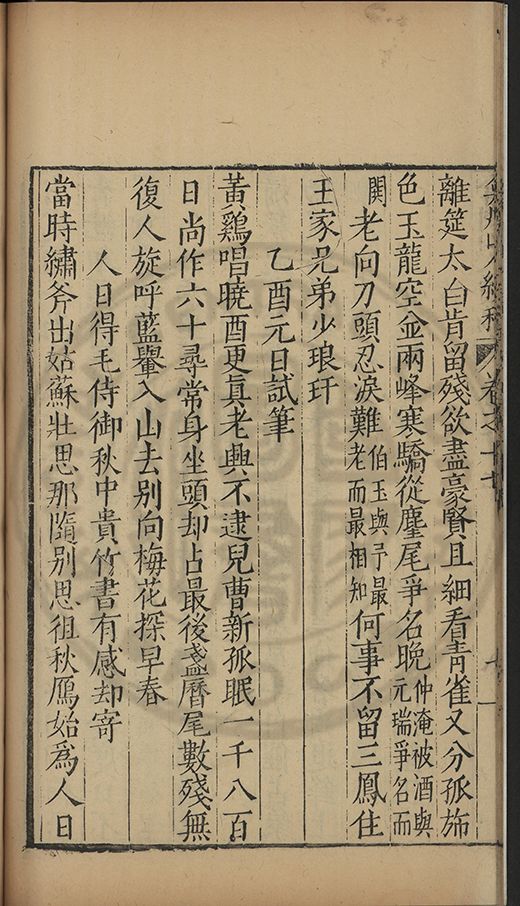 離筵太白肯留殘欲盡豪賢且細看青雀又分孤斾
色玉龍空並兩峰寒驕從麈尾爭名晚仲淹被酒與元瑞爭名而
閧老向刀頭忍淚難伯玉與予最老而最相知何事不留三鳳住
王家兄弟少琅玕
乙酉元日試筆
黃鷄唱曉酉更眞老興不逮兒曹新孤眠一千八百
日尚作六十尋常身坐頭却占最後盞曆尾數殘無
復人旋呼藍轝入山去別向梅花探早春
人日得毛侍御秋中貴竹書有感却寄
當時繡斧出姑蘇壯思那隨別思徂秋鴈始爲人日